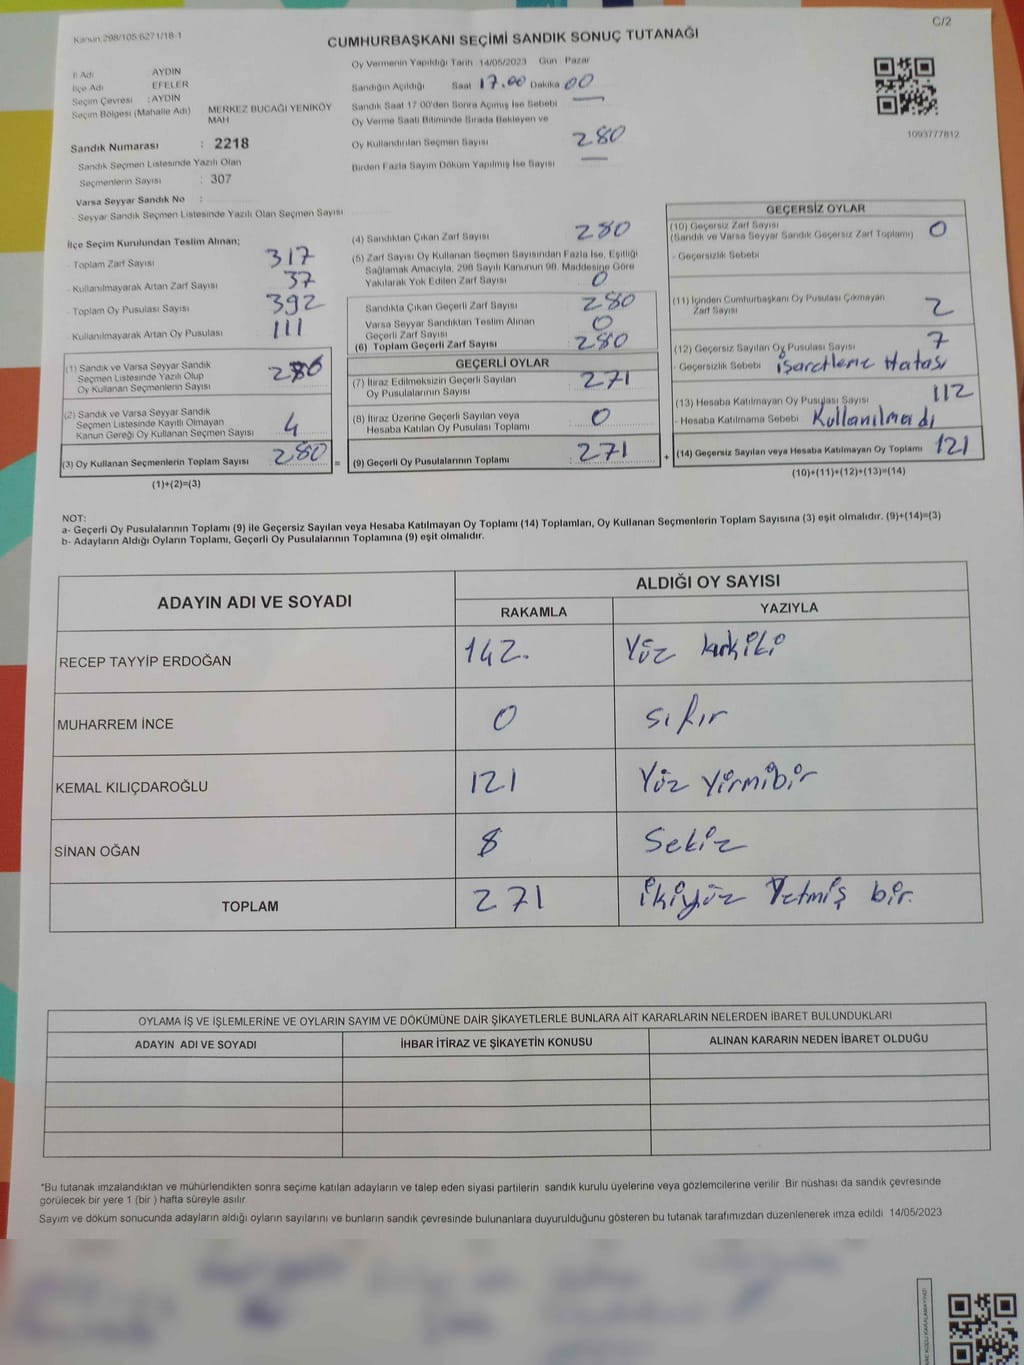 Kanun:298/105.6271/18-1
C/2
CUMHURBAŞKANI SEÇİMİ SANDIK SONUÇ TUTANAĞI
İl Adı AYDIN
İlçe Adı EFELER
Seçim Çevresi : AYDIN
Seçim Bölgesi (Mahalle Adı) MERKEZ BUCAĞI YENİKÖY MAH
Sandık Numarası : 2218
Sandık Seçmen Listesinde Yazılı Olan
Seçmenlerin Sayısı : 307
Varsa Seyyar Sandık No :
- Seyyar Sandık Seçmen Listesinde Yazılı Olan Seçmen Sayısı
Oy Vermenin Yapıldığı Tarih 14/05/2023 Gün Pazar
Sandığın Açıldığı Saat 17.00 Dakika 00
Sandık Saat 17 00'den Sonra Açılmış İse Sebebi —
Oy Verme Saati Bitiminde Sırada Bekleyen ve
Oy Kullandırılan Seçmen Sayısı 280
Birden Fazla Sayım Döküm Yapılmış İse Sayısı —
1093777812
İlçe Seçim Kurulundan Teslim Alınan;
- Toplam Zarf Sayısı 317
- Kullanılmayarak Artan Zarf Sayısı 37
- Toplam Oy Pusulası Sayısı 392
Kullanılmayarak Artan Oy Pusulası 111
(1) Sandık ve Varsa Seyyar Sandık
Seçmen Listesinde Yazılı Olup
Oy Kullanan Seçmenlerin Sayısı
(2) Sandık ve Varsa Seyyar Sandık
Seçmen Listesinde Kayıtlı Olmayan
Kanun Gereği Oy Kullanan Seçmen Sayısı 4
(3) Oy Kullanan Seçmenlerin Toplam Sayısı 280
(1)+(2)=(3)
(4) Sandıktan Çıkan Zarf Sayısı 280
(5) Zarf Sayısı Oy Kullanan Seçmen Sayısından Fazla İse, Eşitliği
Sağlamak Amacıyla, 298 Sayılı Kanunun 98. Maddesine Göre
Yakılarak Yok Edilen Zarf Sayısı 0
Sandıkta Çıkan Geçerli Zarf Sayısı 280
Varsa Seyyar Sandıktan Teslim Alınan
Geçerli Zarf Sayısı 0
(6) Toplam Geçerli Zarf Sayısı 280
GEÇERLİ OYLAR
(7) İtiraz Edilmeksizin Geçerli Sayılan
Oy Pusulalarının Sayısı 271
(8) İtiraz Üzerine Geçerli Sayılan veya
Hesaba Katılan Oy Pusulası Toplamı 0
= (9) Geçerli Oy Pusulalarının Toplamı : 271
GEÇERSİZ OYLAR
(10) Geçersiz Zarf Sayısı
(Sandık ve Varsa Seyyar Sandık Geçersiz Zarf Toplamı) 0
- Geçersizlik Sebebi
(11) İçinden Cumhurbaşkanı Oy Pusulası Çıkmayan
Zarf Sayısı 2
(12) Geçersiz Sayılan Oy Pusulası Sayısı 7
- Geçersizlik Sebebi işaretleme Hatası
(13) Hesaba Katılmayan Oy Pusulası Sayısı 112
- Hesaba Katılmama Sebebi Kullanılmadı
+ (14) Geçersiz Sayılan veya Hesaba Katılmayan Oy Toplamı 121
(10)+(11)+(12)+(13)=(14)
NOT:
a- Geçerli Oy Pusulalarının Toplamı (9) ile Geçersiz Sayılan veya Hesaba Katılmayan Oy Toplamı (14) Toplamları, Oy Kullanan Seçmenlerin Toplam Sayısına (3) eşit olmalıdır. (9)+(14)=(3)
b- Adayların Aldığı Oyların Toplamı, Geçerli Oy Pusulalarının Toplamına (9) eşit olmalıdır.
ADAYIN ADI VE SOYADI
ALDIĞI OY SAYISI
RAKAMLA YAZIYLA
RECEP TAYYİP ERDOĞAN 142. Yüz kırkiki
MUHARREM İNCE 0 sıfır
KEMAL KILIÇDAROĞLU 121 Yüz yirmibir
SİNAN OĞAN 8 Sekiz
TOPLAM 271 ikiyüz Yetmiş bir.
OYLAMA İŞ VE İŞLEMLERİNE VE OYLARIN SAYIM VE DÖKÜMÜNE DAİR ŞİKAYETLERLE BUNLARA AİT KARARLARIN NELERDEN İBARET BULUNDUKLARI
ADAYIN ADI VE SOYADI İHBAR İTİRAZ VE ŞİKAYETİN KONUSU ALINAN KARARIN NEDEN İBARET OLDUĞU
*Bu tutanak imzalandıktan ve mühürlendikten sonra seçime katılan adayların ve talep eden siyasi partilerin sandık kurulu üyelerine veya gözlemcilerine verilir Bir nüshası da sandık çevresinde
görülecek bir yere 1 (bir ) hafta süreyle asılır
Sayım ve döküm sonucunda adayların aldığı oyların sayılarını ve bunların sandık çevresinde bulunanlara duyurulduğunu gösteren bu tutanak tarafımızdan düzenlenerek imza edildi 14/05/2023